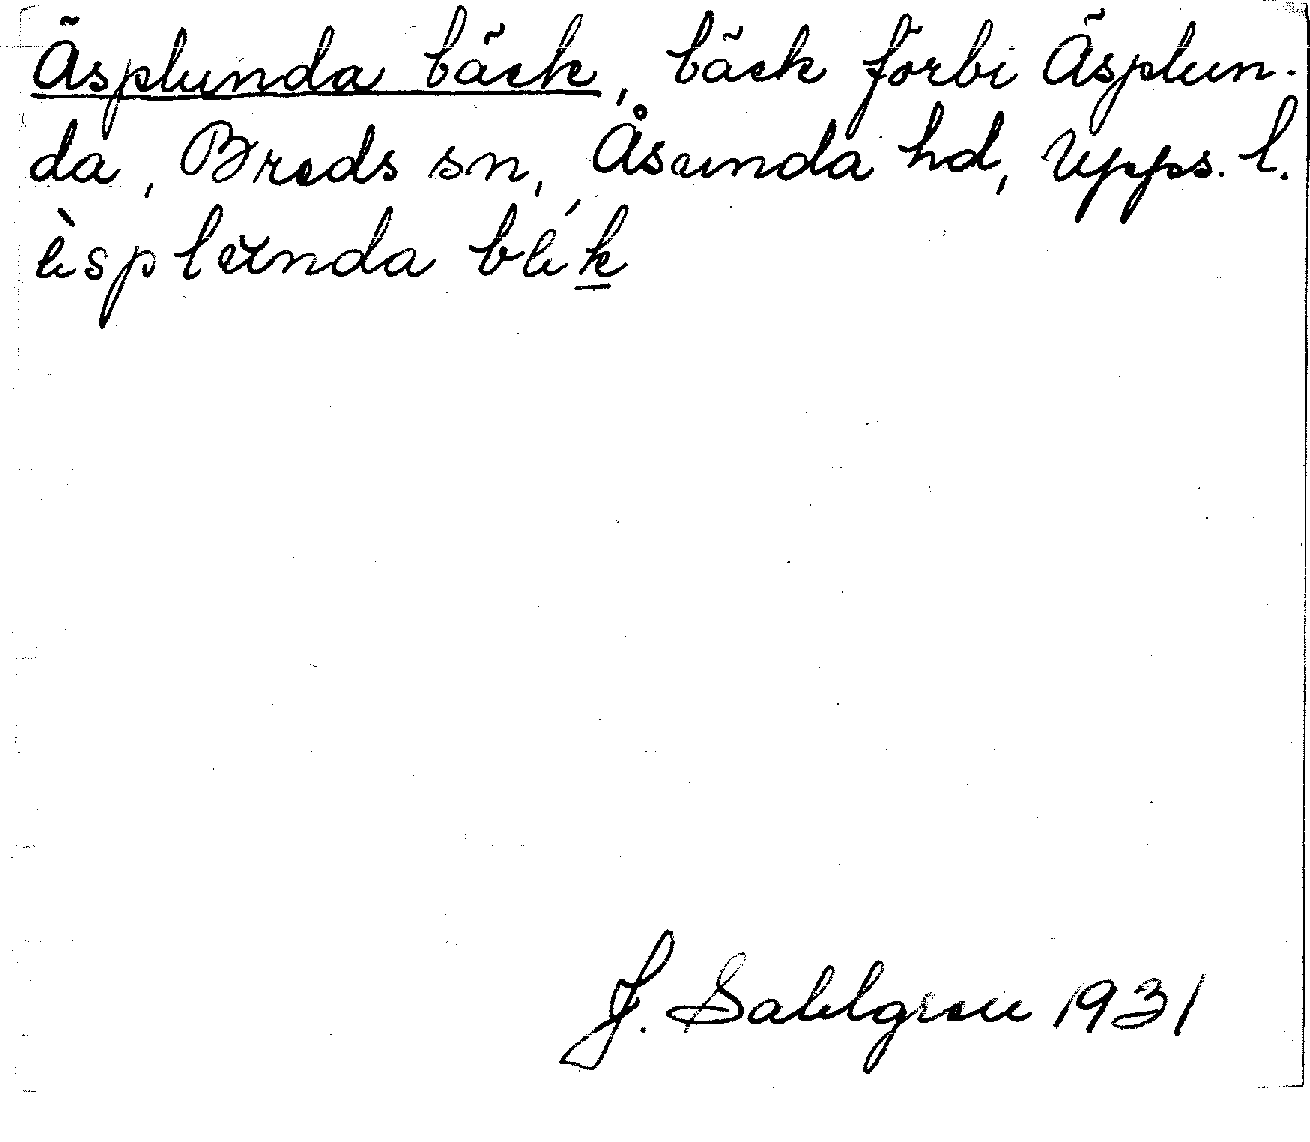 Äsplunda bäck, bäck förbi Äsplun-
da, Breds sn, Åsunda hd, Upps. l.
J. Sahlgren 1931